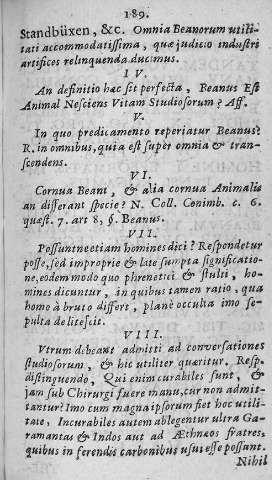 189.
Standbüxen, &c. Omnia Beanorum utili-
tati accommodatissima, quæ judicio industri
artifices relinquenda ducimus.
IV.
An definitio hæc sit perfecta, Beanus Est
Animal Nesciens Vitam Studiosorum? Aff.
V.
In quo predicamento reperiatur Beanus?
R. in omnibus, quia est super omnia & tran-
scendens.
VI.
Cornua Beani, & alia cornua Animalia
an differant specie? N. Coll. Conimb. c. 6.
quæst. 7. art 8, §. Beanus.
VII.
Possuntne etiam homines dici? Respondetur
posse, sed improprie & late sumpta significatio-
ne, eodem modo quo phrenetici & stulti, ho-
mines dicuntur, in quibus tamen ratio, qua
homo à bruto differt, planè occulta imo se-
pulta delitescit.
VIII.
Utrum debeant admitti ad conversationes
studiosorum, & hic utiliter quæritur. Resp.
distinguendo, Qui enim curabiles sunt, &
jam sub Chirurgi fuere manu, cur non admit-
tantur? Imo cum magna ipsorum fiet hoc utili-
tate, Incurabiles autem ablegentur ultra Ga-
ramantas & Indos aut ad Æthnæos fratres,
quibus in ferendis carbonibus usui esse possunt.
Nihil